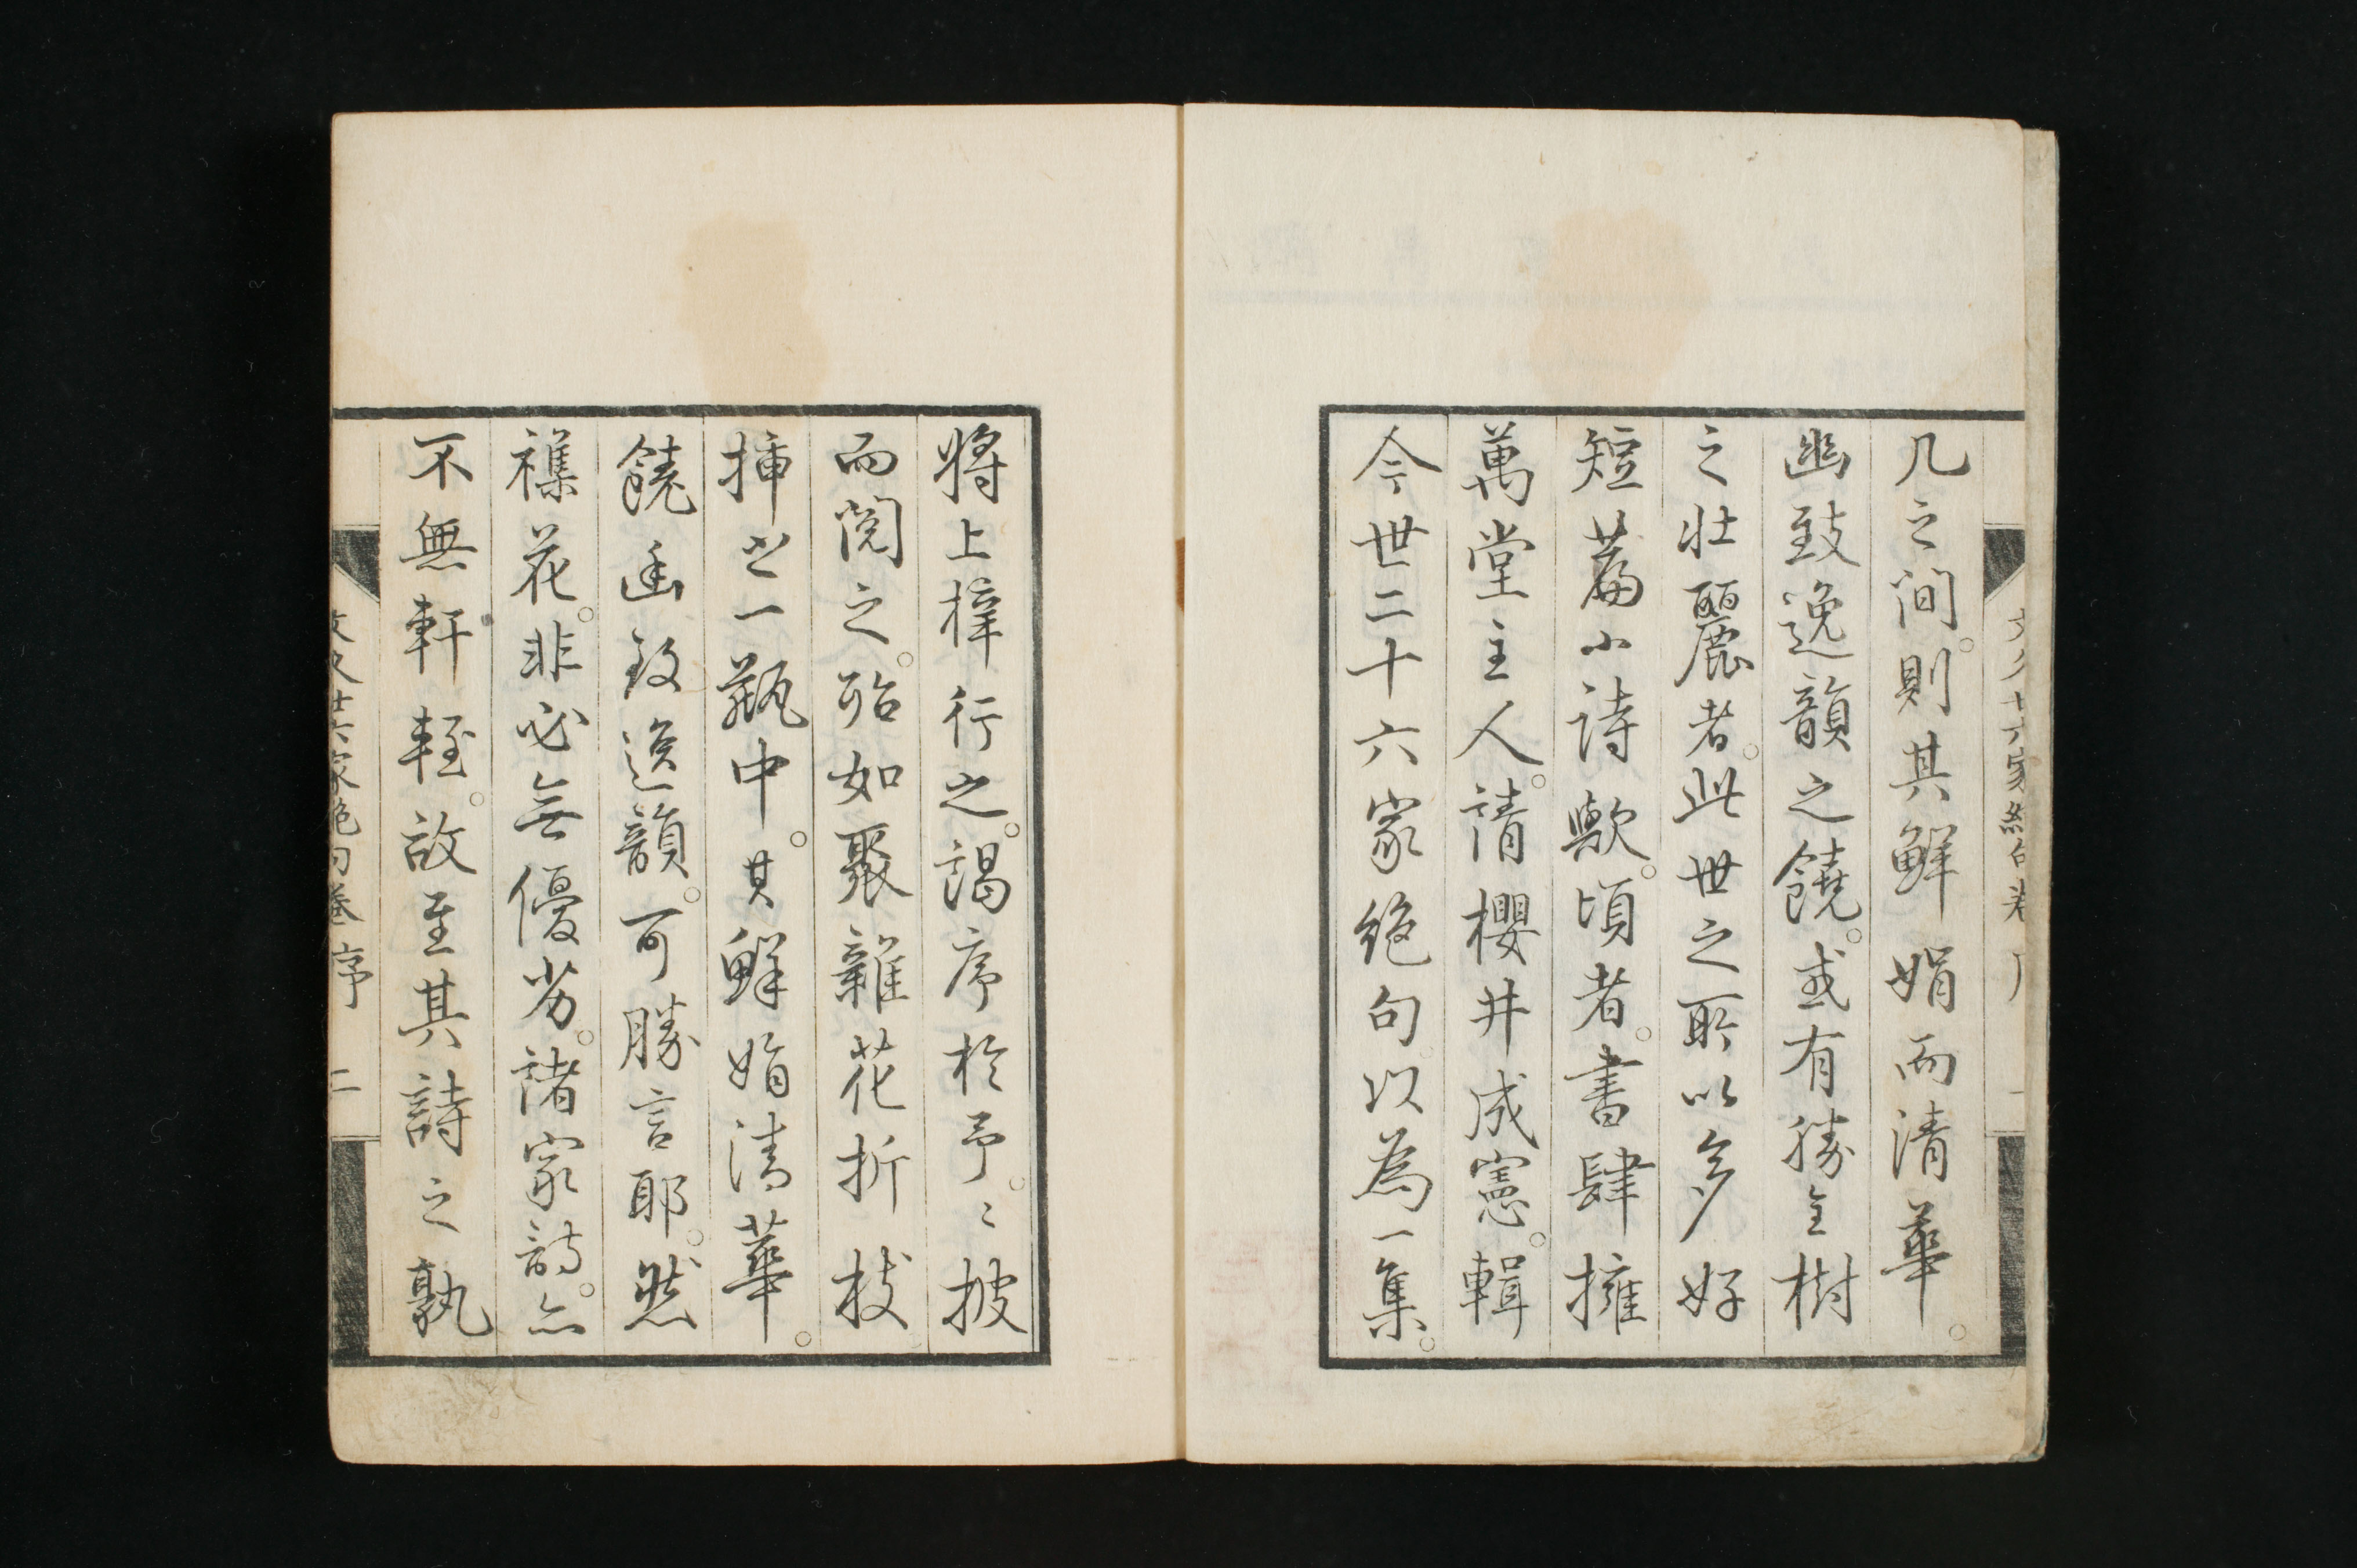 几之間。則其鮮娟而清華。
幽致逸韻之饒。或有勝全樹
之壯麗者。此世之所以多好
短篇小詩歟。頃者。書肆擁
萬堂主人。請櫻井成憲。輯
今世二十六家絶句以為一集。
將上梓行之。謁序於予。〻披
而閲之。殆如聚雜花折枝
挿之一瓶中。其鮮娟清華。
饒幽致逸韻。可勝言耶。然
襍花。非必無優劣。諸家詩。亦
不無軒輊。故至其詩之孰
文久廿六家絶句卷 序 二